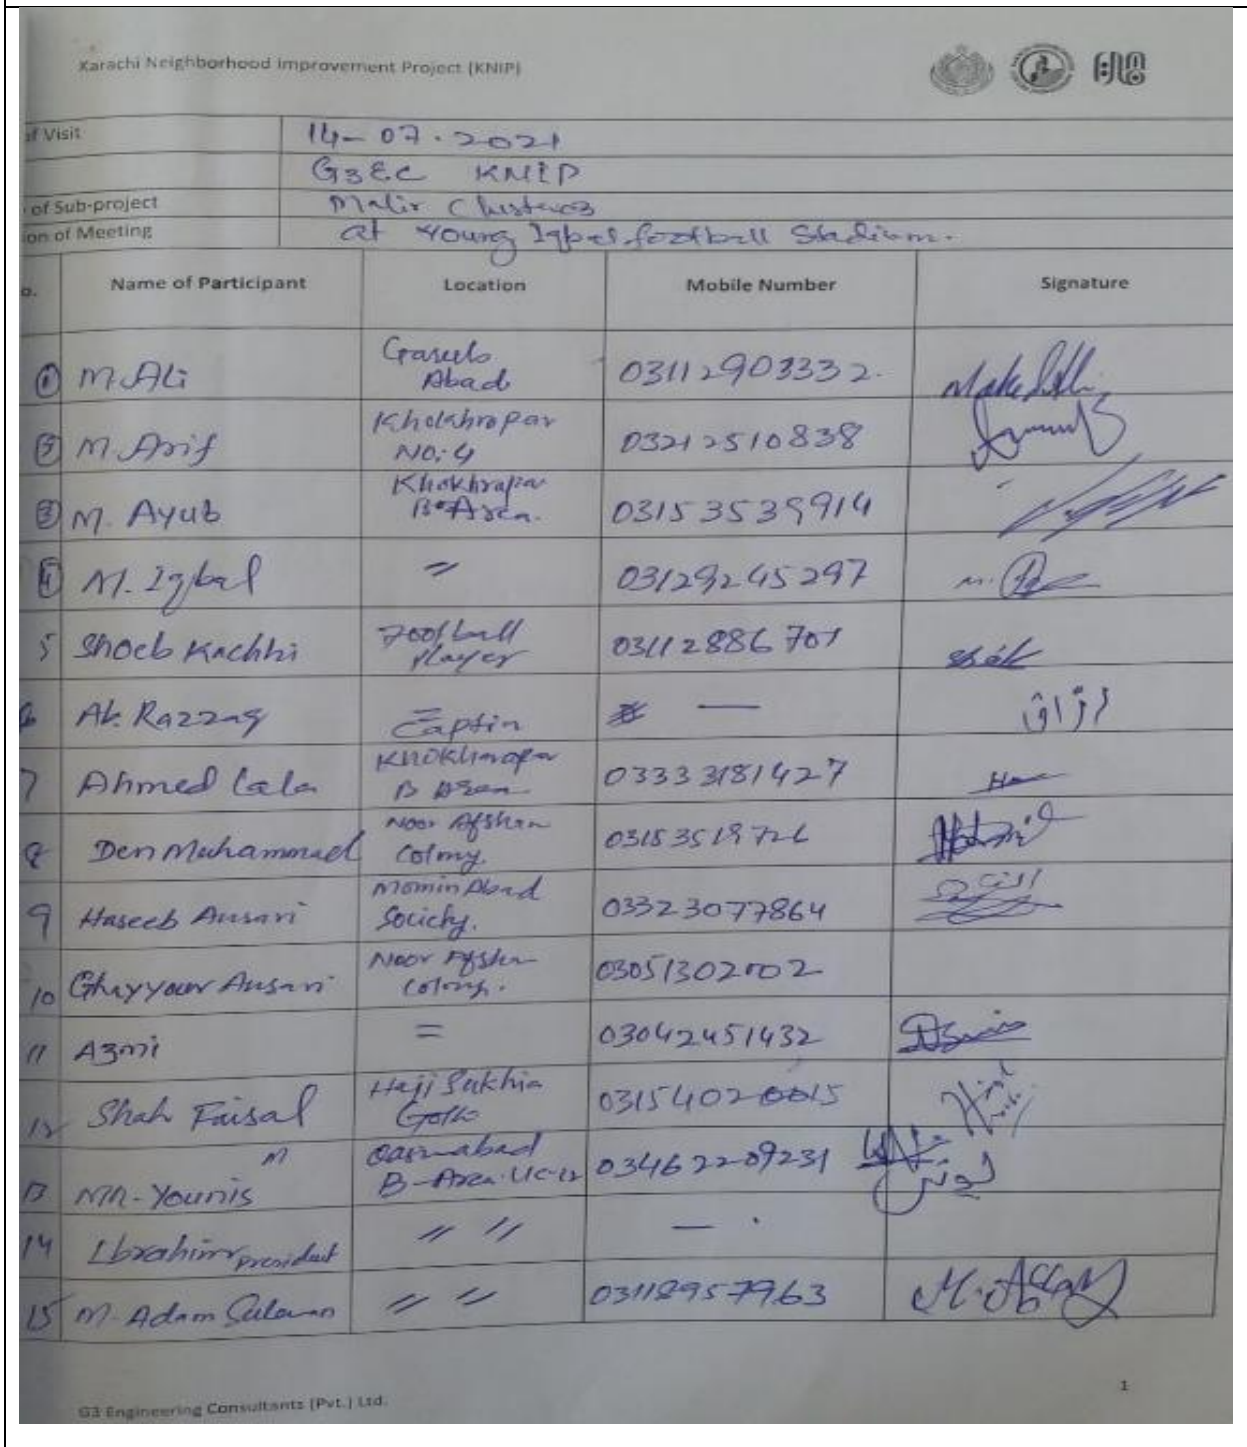 Karachi Neighborhood Improvement Project (KNIP)
of Visit 14-07-2021
G3EC KNIP
of Sub-project Malir Cluster 03
ion of Meeting at Young Iqbal football Stadium.
o. Name of Participant Location Mobile Number Signature
1 M. Ali Gareeb Abad 03112903332
2 M. Arif Khokhrapar No: 4 03212510838
3 M. Ayub Khokhrapar B Area. 03153539914
4 M. Iqbal 〃 03129245297
5 Shoeb Kachhi Football Player 03112886701
6 Ab. Razzaq = Captin — رزاق
7 Ahmed Lala Khokhrapar B Area 03333181427
8 Den Muhammad Noor Afshan Colony. 03153519726
9 Haseeb Ansari Momin Abad Society. 03323077864
10 Ghayyour Ansari Noor Afshan Colony.
11 Azmi = 03042451432 Azmi
12 Shah Faisal Haji Sukhia Goth 03154020015
13 M. Younis B-Area. UC-12 03462209231 یونس
14 Ibrahim president 〃 〃 —
15 M. Adam 〃 〃 03118957963
G3 Engineering Consultants (Pvt.) Ltd.
1